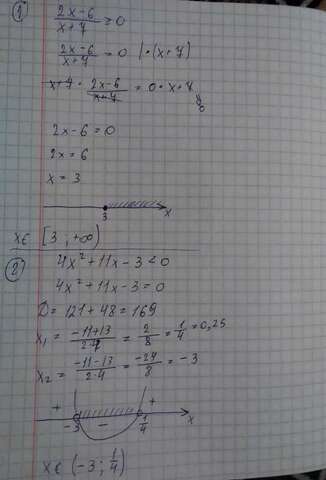 1) (2x-6)/(x+7) ≥ 0
(2x-6)/(x+7) = 0 | · (x+7)
x+7 · (2x-6)/(x+7) = 0 · x+7
0
2x-6 = 0
2x = 6
x = 3
3 x
x ∈ [3 ; +∞)
2) 4x² + 11x - 3 < 0
4x² + 11x - 3 = 0
D = 121 + 48 = 169
x₁ = (-11+13)/(2·4) = 2/8 = 1/4 = 0,25
x₂ = (-11-13)/(2·4) = -24/8 = -3
+ - +
-3 1/4 x
x ∈ (-3 ; 1/4)